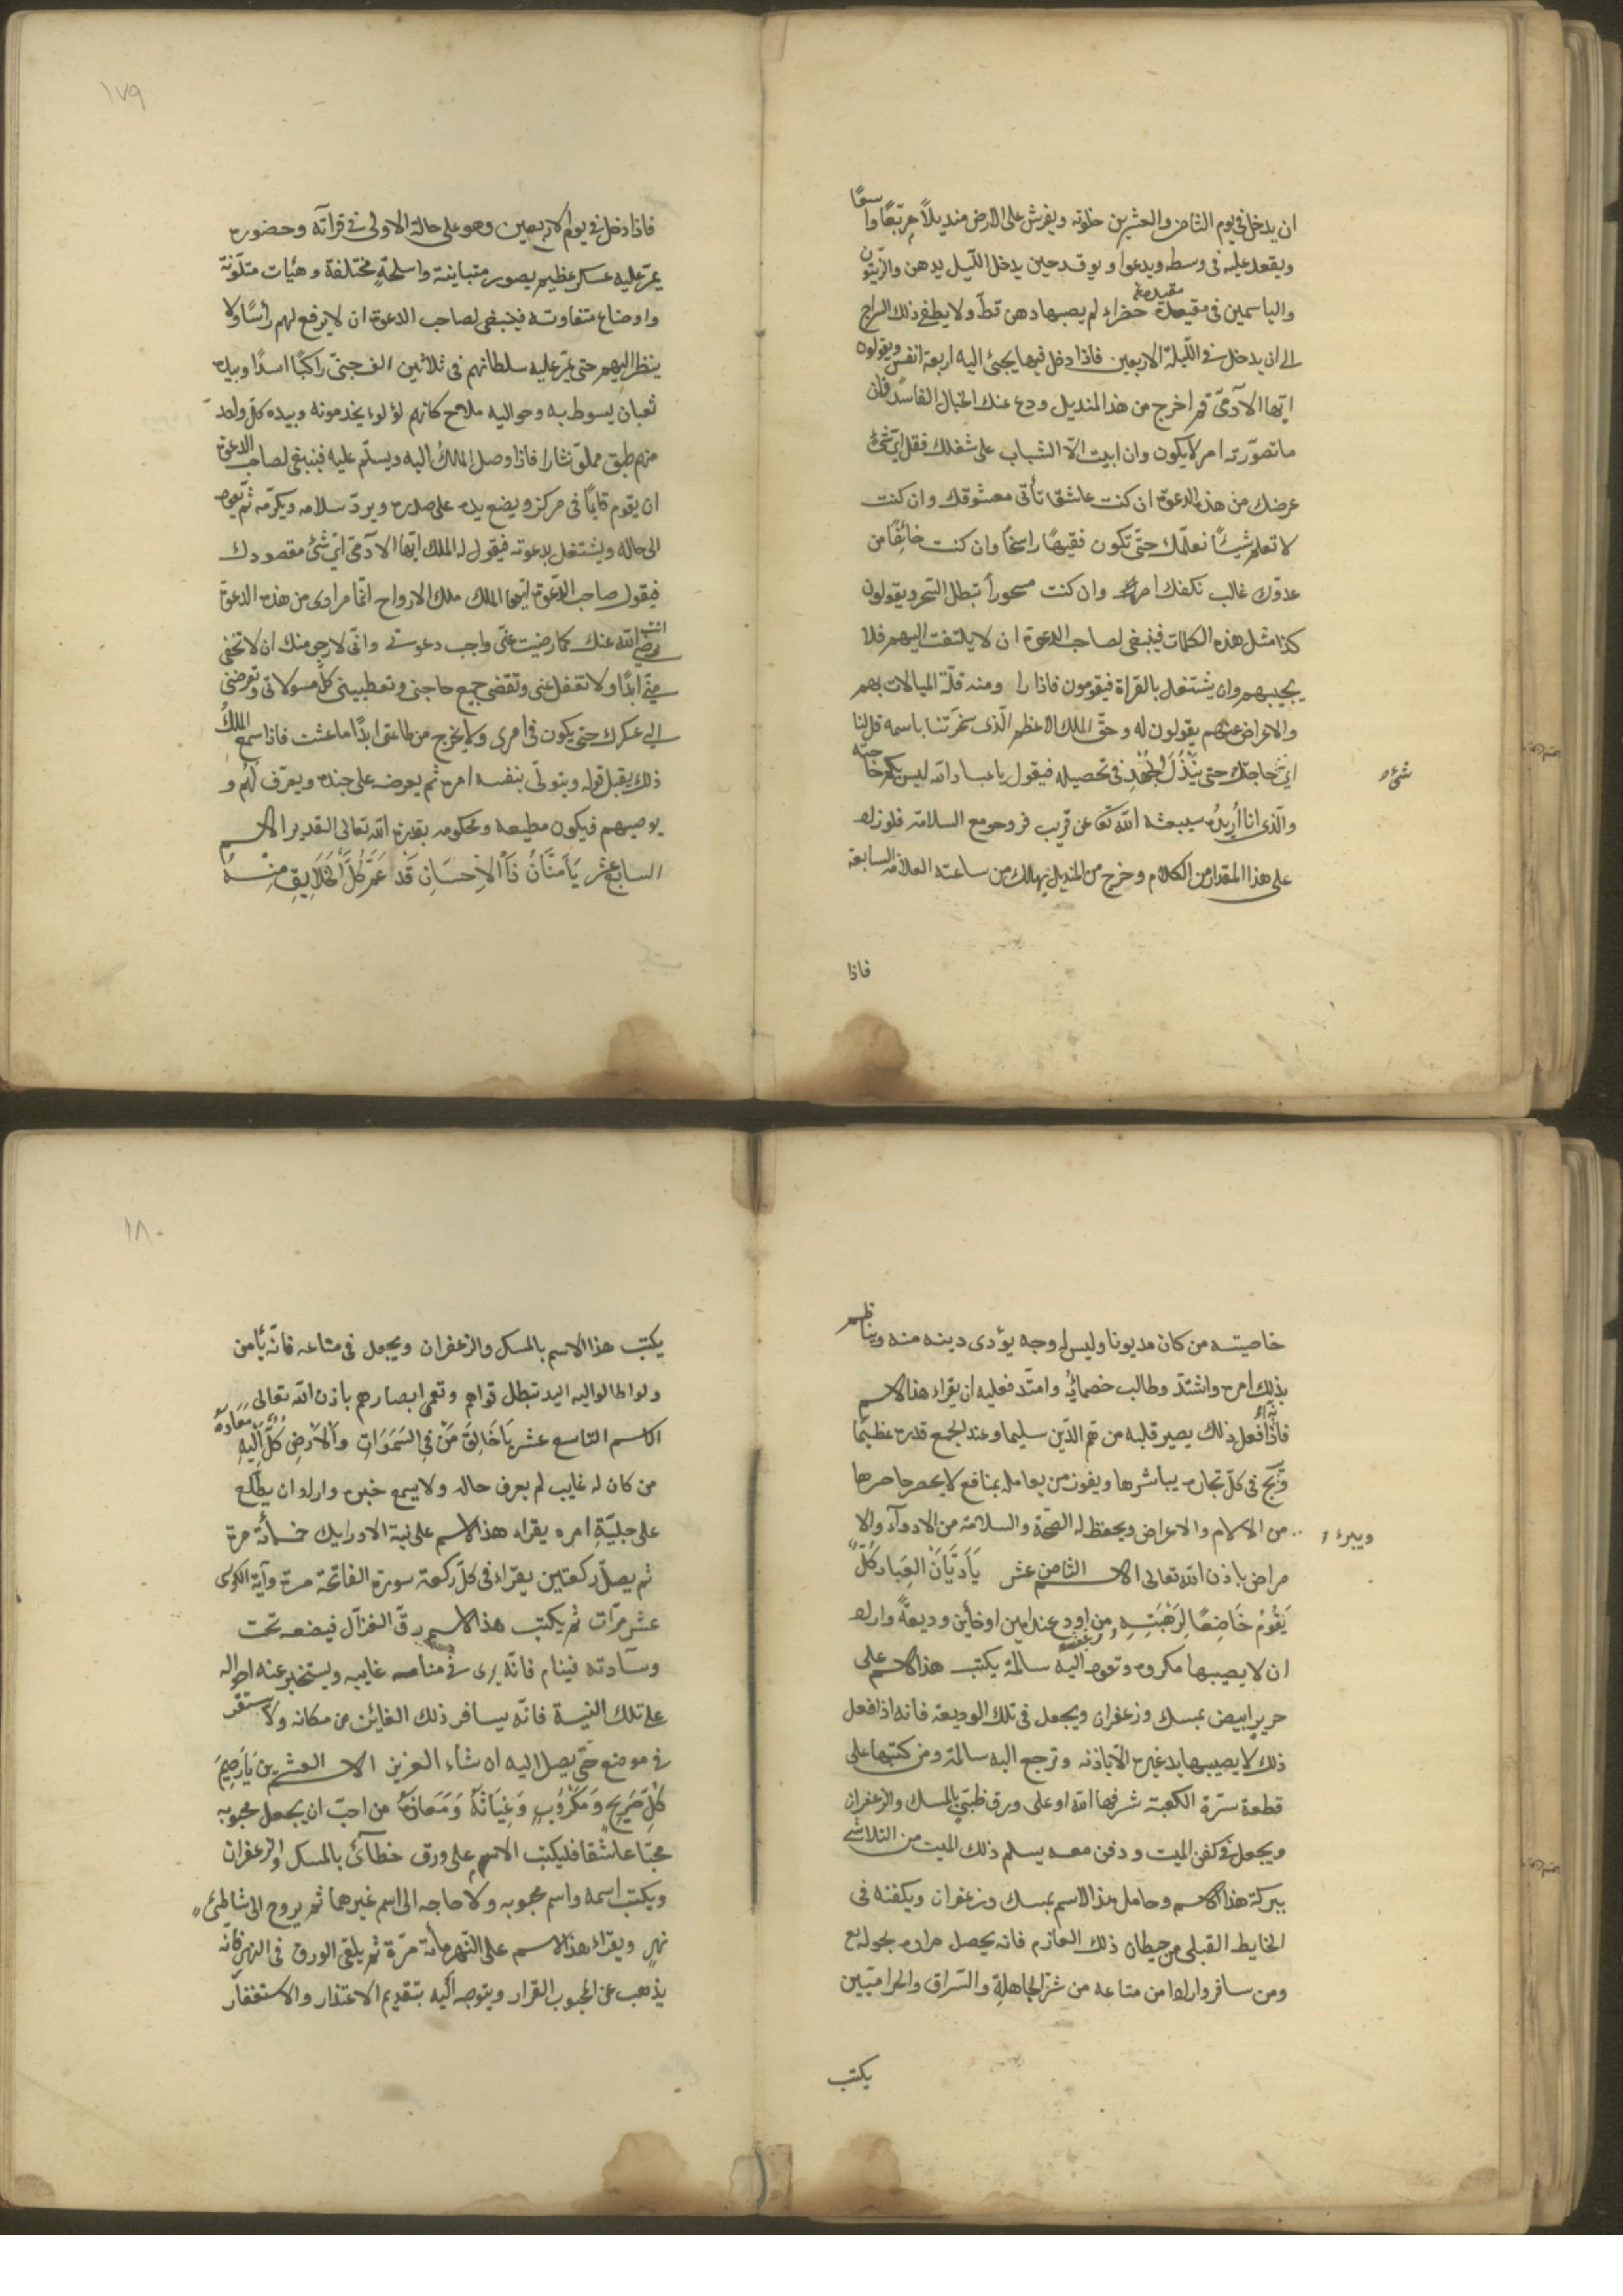 ان يدخل في يوم الثامن والعشرين خلوته ويفرش على الارض منديلاً مربّعًا واسعًا
ويقعد عليه فى وسطه ويدعوا ويوقد حين يدخل الليل بدهن والزيتون
والياسمين فى خضراء لم يصبها دهن قطّ ولا يطفى ذلك السراج
الى ان يدخل فى الليلة الاربعين فاذا دخل فيها يجئ اليه اربعة انفس ويقولون
ايّها الآدمىّ قم اخرج من هذا المنديل ودع عنك الخيال الفاسد فان
ما تصوّرته امر لا يكون وان ابيت الّا الشباب على شغلك فقل اىّ شئ
عرضك من هذه الدعوة ان كنت عاشقا تأتى معشوقك وان كنت
لا تعلم شيئًا نعلّمك حتّى تكون فقيهًا راسخًا وان كنت خائفًا من
عدوّك غالب نكفك امره وان كنت مسحوراً تبطل السحر ويقولون
كذا مثل هذه الكلمات فينبغى لصاحب الدعوة ان لا يلتفت اليهم فلا
يجيبهم وان يشتغل بالقراة فيقومون فاذا را ومنه قلّة المبالات بهم
والاعراض عنهم يقولون له وحقّ الملك الاعظم الّذى سخرتنا باسمه قل لنا
اىّ حاجتك حتى يَبْذُلَ الجُهْد فى تحصيله فيقول يا عباد الله ليس بكم حاجته
شئ
والّذى انا اُرِيدُه سيبعثه الله تعا عن قريب فروحو مع السلامة فلو زاد
على هذا المقدار من الكلام وخرج من المنديل يهلك من ساعته العلامة السابعة
فاذا
١٧٩
فاذا دخل فى يوم الاربعين وهو على حالة الاولى فى قراته وحضوره
يمرّ عليه عسكر عظيم بصور متباينة واسلحةٍ مختلفة وهيات متلوّنة
واوضاع متفاوته فينبغى لصاحب الدعوة ان لا يرفع لهم رأسًا ولا
ينظر اليهم حتى يمرّ عليه سلطانهم فى ثلاثين الف جنّى راكبًا اسدًا وبيده
ثعبان يسوط به وحواليه ملاح كانهم لؤلوء يخدمونه وبيده كلّ واحد
منهم طبق مملوّ نثارا فاذا وصل الملك اليه ويسلّم عليه فينبغى لصاحب الدعوة
ان يقوم قايمًا فى مركز ويضع يده على صدره ويردّ سلامه ويكرّمه ثمّ يعود
الى حاله ويشتغل بدعوته فيقول له الملك ايّها الآدمىّ اىّ شئ مقصودك
فيقول صاحب الدّعوة ايّها الملك ملك الارواح انّما مرادى من هذه الدعوة
رضى الله عنك كما رضيت عنّى واجب دعوتى وانّى لارجى منك ان لا تخفى
منّى ابدًا ولا تغفل عنى وتقضى جميع حاجتى وتعطينى كلّ مسولاتى وتعرضنى
الى عسكرك حتى يكون فى امرى ولا يخرج من طاعتى ابدًا ما عشت فاذا سمع الملكُ
ذلك يقبل قوله ويتولّى بنفسه امره ثم يعرضه على جنده ويعرّف لهُم و
يوصيهم فيكون مطيعه ومحكومه بقدرة الله تعالى القدير الاسم
السابع عشر يَا مَنَّانُ ذَا الْاِحسَانِ قَد عَمَّ كُلَّ الْخَلَايِقِ مِنْهُ
خاصيته من كان مديونا وليس له وجه يؤدى دينه منه ويناظم
بذلك امره واشتدّ وطالب خصمايُه وامتدّ فعليه ان يقراء هذا الاسم
فاذا فعل ذلك يصير قلبه من همّ الدّين سليما وعند الجمع قدره عظيمًا
وَربح فى كلّ تجارة يباشرها ويفوز من يعامله بمنافع لا يحصر حاصرها
ويبرء
من الآلام والاعراض ويحفظ له الصّحة والسلامة من الادوآء والا
مراض باذن الله تعالى الاسم الثامن عشر يَا دَيَّانَ الْعِبَاد كُلٌّ
يَقُومُ خَاضِعًا لِرَهْبَتِهِ من اودع عند امين او خأين وديعةً واراد
ان لا يصيبها مكروه وتعود اليه سالمة يكتب هذا الاسم على
حرير ابيض بمسك وزعفران ويجعل فى تلك الوديعة فانه اذا فعل
ذلك لا يصيبها يد غيره الّا باذنه وترجع اليه سالمة ومن كتبها على
قطعة سترة الكعبة شرفها الله او على ورق ظبّى بالمسك والزعفران
ويجعل فى كفن الميت ودفن معه يسلم ذلك الميت من التلاشى
ببركة هذا الاسم وحامل هذا الاسم بمسك وزعفران ويكفنه فى
الخايط القبلى من حيطان ذلك العازم فانه يحصل مراده بجوله يع
ومن سافر واراد امن متاعه من شرّ الجاهلة والسّراق والحراميّين
يكتب
١٨٠
يكتب هذا الاسم بالمسك والزعفران ويجعل فى متاعه فانّه يأمن
ولو اطالوا اليه اليد تبطل قواهم وتعمى ابصارهم باذن الله تعالى
الاسم التاسع عشر يَا خَالِقَ مَنْ فِى السَمَوَاتِ وَالْاَرْضِ كُلٌّ اِلَيْهِ مَعَادُهُ
من كان له غايب لم يعرف حاله ولا يسمع خبره واراد ان يطّلع
على جليّةِ امره يقراء هذا الاسم على نية الادرايك خمسأئة مرة
ثم يصلّ ركعتين يقراء فى كلّ ركعة سورة الفاتحة مرة وآية الكرسى
عشر مرّات ثم يكتب هذا الاسم رقّ الغزآل فيضعه تحت
وسآدته فينام فانّه يرى فى منامه غايبه ويستخبر عنه احواله
على تلك النية فانّه يسافر ذلك الغائب من مكانه ولا يستقر
فى موضع حتّى يصل اليه ان شاء العزيز الاسم العشرين يَا رَحِيمَ
كُلِّ صَرِيخٍ وَمَكْرُوُبٍ وَغِيَاثَهُ وَمَعَاذَهُ من احبّ ان يجعل محبوبه
محبّا عاشقا فليكتب الاسم على ورق خطآئ بالمسك والزعفران
ويكتب اسمه واسم محبوبه ولا حاجه الى اسم غيرهما ثم يروح الى شاطئ
نهرٍ ويقراء هذ الاسم على النّهر مأئة مرّة ثم يلقى الورق فى النهر فانّه
يذهب عن المحبوب القرار ويتوجه اليه بتقديم الاعتذار والاستغفار